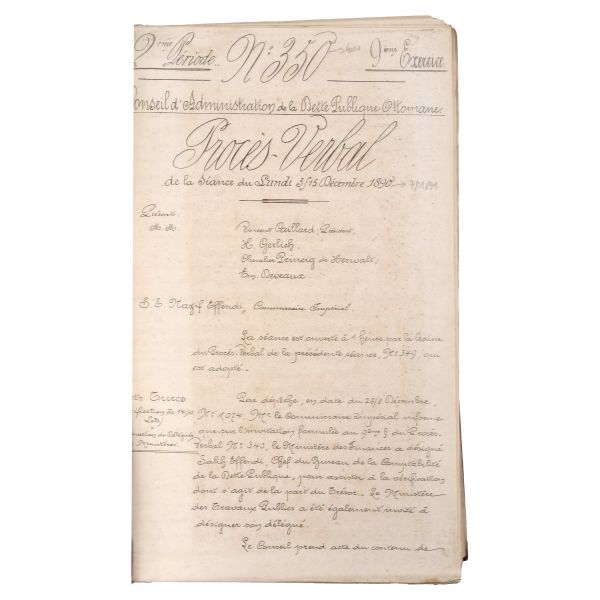 2ème Période. N° 350 9ème Exercice
Conseil d'Administration de la Dette Publique Ottomane
Procès-Verbal
de la Séance du Lundi 3/15 Décembre 1890
Présents:
M. M. Vincent Caillard, Président,
H. Gerlich,
Chevalier Princig de Herwalt,
Em. Deveaux.
S. E. Nazif Effendi, Commissaire Impérial.
La séance est ouverte à 1 heure par la lecture
du Procès-Verbal de la précédente séance, N° 349, qui
est adopté.
Lots Turcs
Par dépêche, en date du 26/8 Décembre,
N° 1074 Mr. le Commissaire Impérial informe
que sur l'invitation formulée au § du Procès-
Verbal N° 343, le Ministère des Finances a désigné
Salih Effendi, Chef du Bureau de la Comptabilité
de la Dette Publique, pour assister à la vérification
dont s'agit de la part du Trésor. Le Ministère
des Travaux Publics a été également invité à
désigner son délégué.
Le Conseil prend acte du contenu de